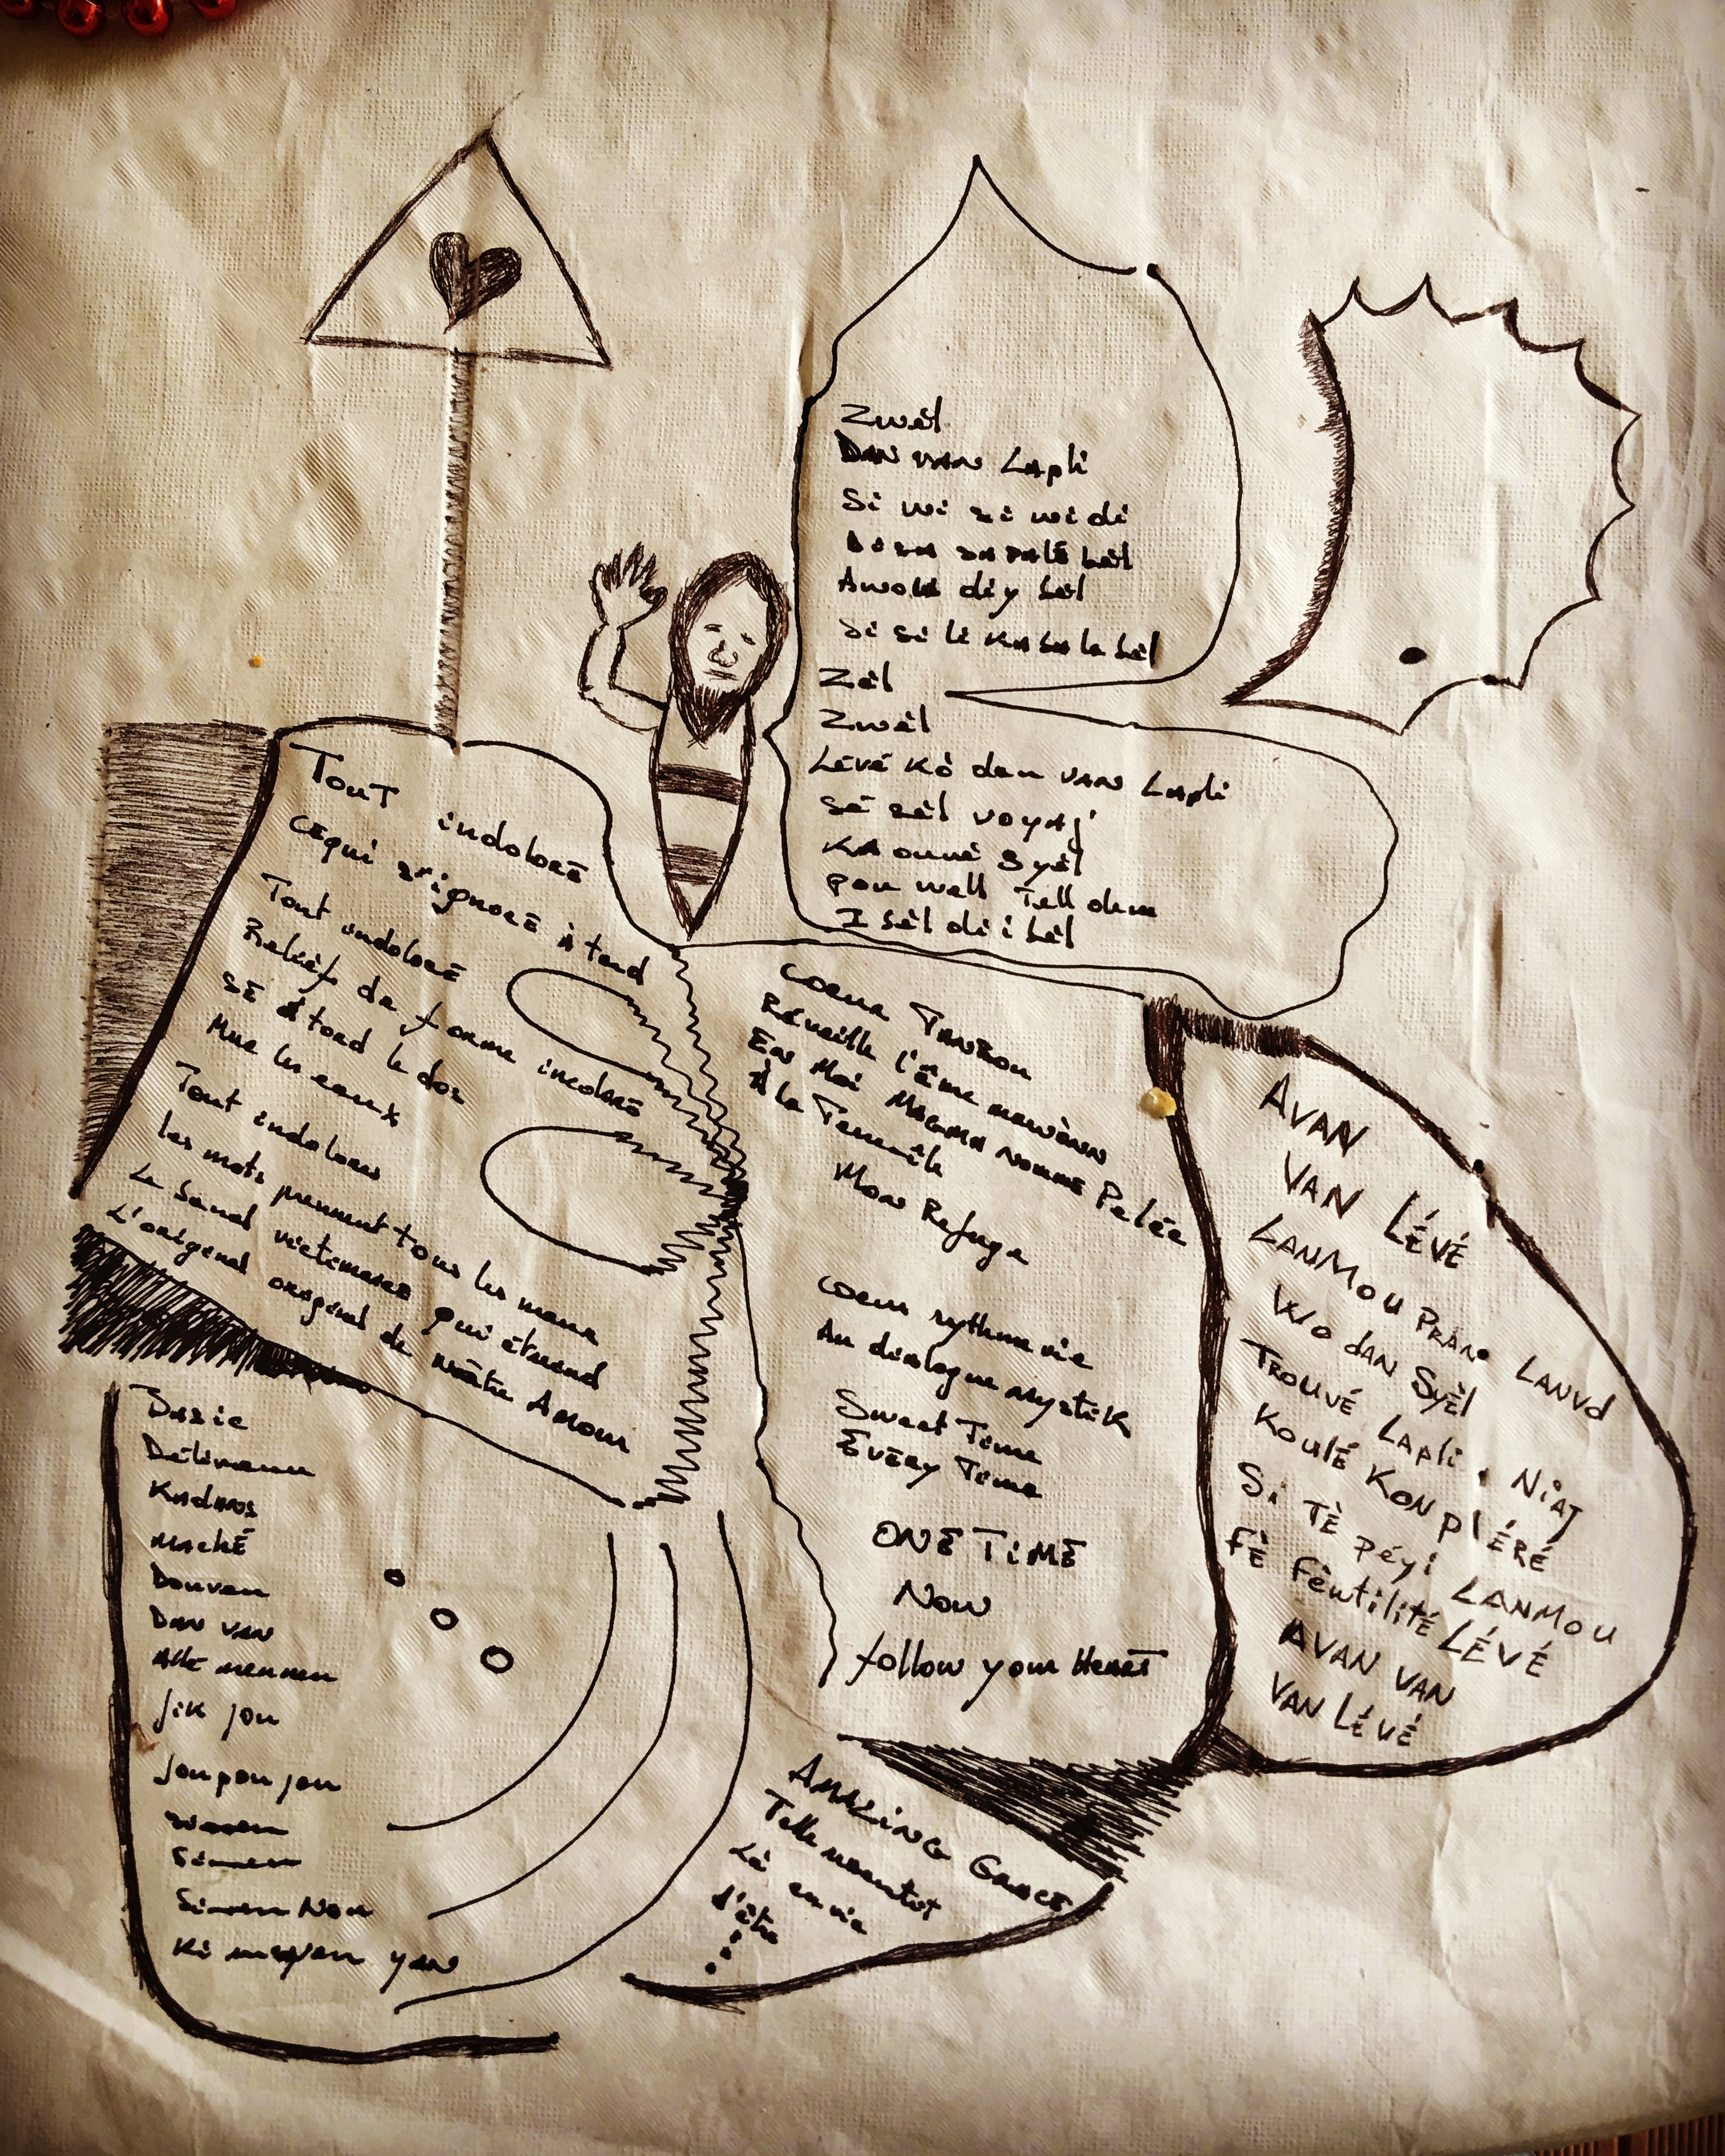 Zwèl
Dan van Lapli
Si wi zi wi di
sa palé bèl
Awow di y bèl
Si si li ka sa la bèl
Zèl
Zwèl
Lévé kò dan van Lapli
Sé zèl voyaj'
Ka ouvè syèl
pou well Tell dem
I bèl di i bèl
Tout indolore
Ce qui s'ignore à tord
Tout indolore
Relief de forme incolore
Se étord le dos
Mue les eaux
Tout indolore
les mots prennent tous les maux
L'original original de nôtre Amour
Coeur Tanbou
Réveille l'âme mawònn
En Moi Magma nommé Pelée
À la Terre-île
Mon Refuge
Coeur rythme vie
Au dialogue mystik
Sweet Time
Every Time
ONE TiME
Now
follow your Heart
AVAN
VAN LÉVÉ
LANMOU PRAN LANVOL
WO dAN Syèl
TROUVÉ LApli, NiAJ
KOULÉ KON pléRÉ
Si TÈ péyi LANMOU
FÈ FÈWTILITÉ LÉVÉ
AVAN VAN
VAN LÉVÉ
Délivrann
maché
Douvan
Dan van
Allé mennen
Jik jou
Jou pou jou
Simen
Simen
Simen Nou
Ki mayen yan
AMAZiNG GRACE
Tellement
La envie
d'être